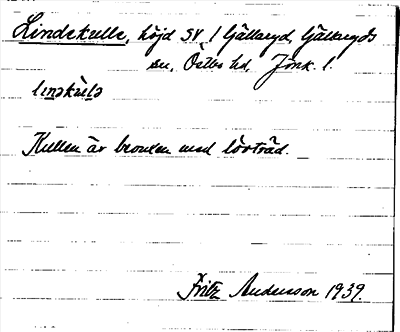 Lindekulle, höjd SV / Gällaryd, Gällaryds
sn, Östbo hd, Jönk. l.
Kullen är bevuxen med lövträd.
Fritz Andersson 1939.